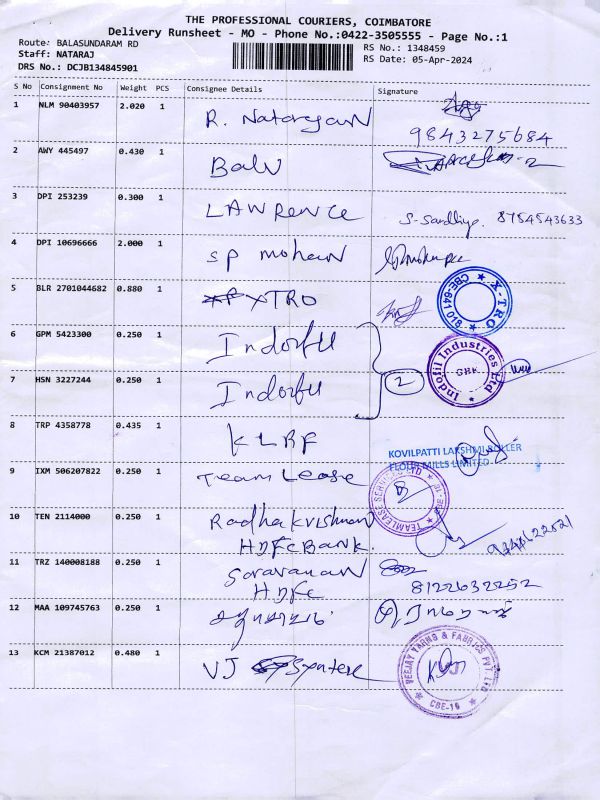 THE PROFESSIONAL COURIERS, COIMBATORE
Delivery Runsheet - MO - Phone No.:0422-3505555 - Page No.:1
Route: BALASUNDARAM RD
Staff: NATARAJ
DRS No.: DCJB134845901
RS No.: 1348459
RS Date: 05-Apr-2024
S No Consignment No Weight PCS Consignee Details Signature
1 NLM 90403957 2.020 1 R. Natarajan
9843275684
2 AWY 445497 0.430 1 Balu
3 DPI 253239 0.300 1 LAWRENCE S. Sandhiya. 8754543633
4 DPI 10696666 2.000 1 SP mohan
5 BLR 2701044682 0.880 1 XTRO
X-TRO CBE-641 018
6 GPM 5423300 0.250 1 Indorfil
Indofil Industries Ltd
CBE
7 HSN 3227244 0.250 1 Indorfil 2
8 TRP 4358778 0.435 1 KLRF
KOVILPATTI LAKSHMI ROLLER
FLOUR MILLS LIMITED
9 IXM 506207822 0.250 1 Team Lease
10 TEN 2114000 0.250 1 Radhakrishnan
HDFC Bank.
11 TRZ 140008188 0.250 1 Saravanan
HDFC
8122632252
12 MAA 109745763 0.250 1
13 KCM 21387012 0.480 1 VJ
VEEJAY YARNS & FABRICS PVT LTD
CBE-18